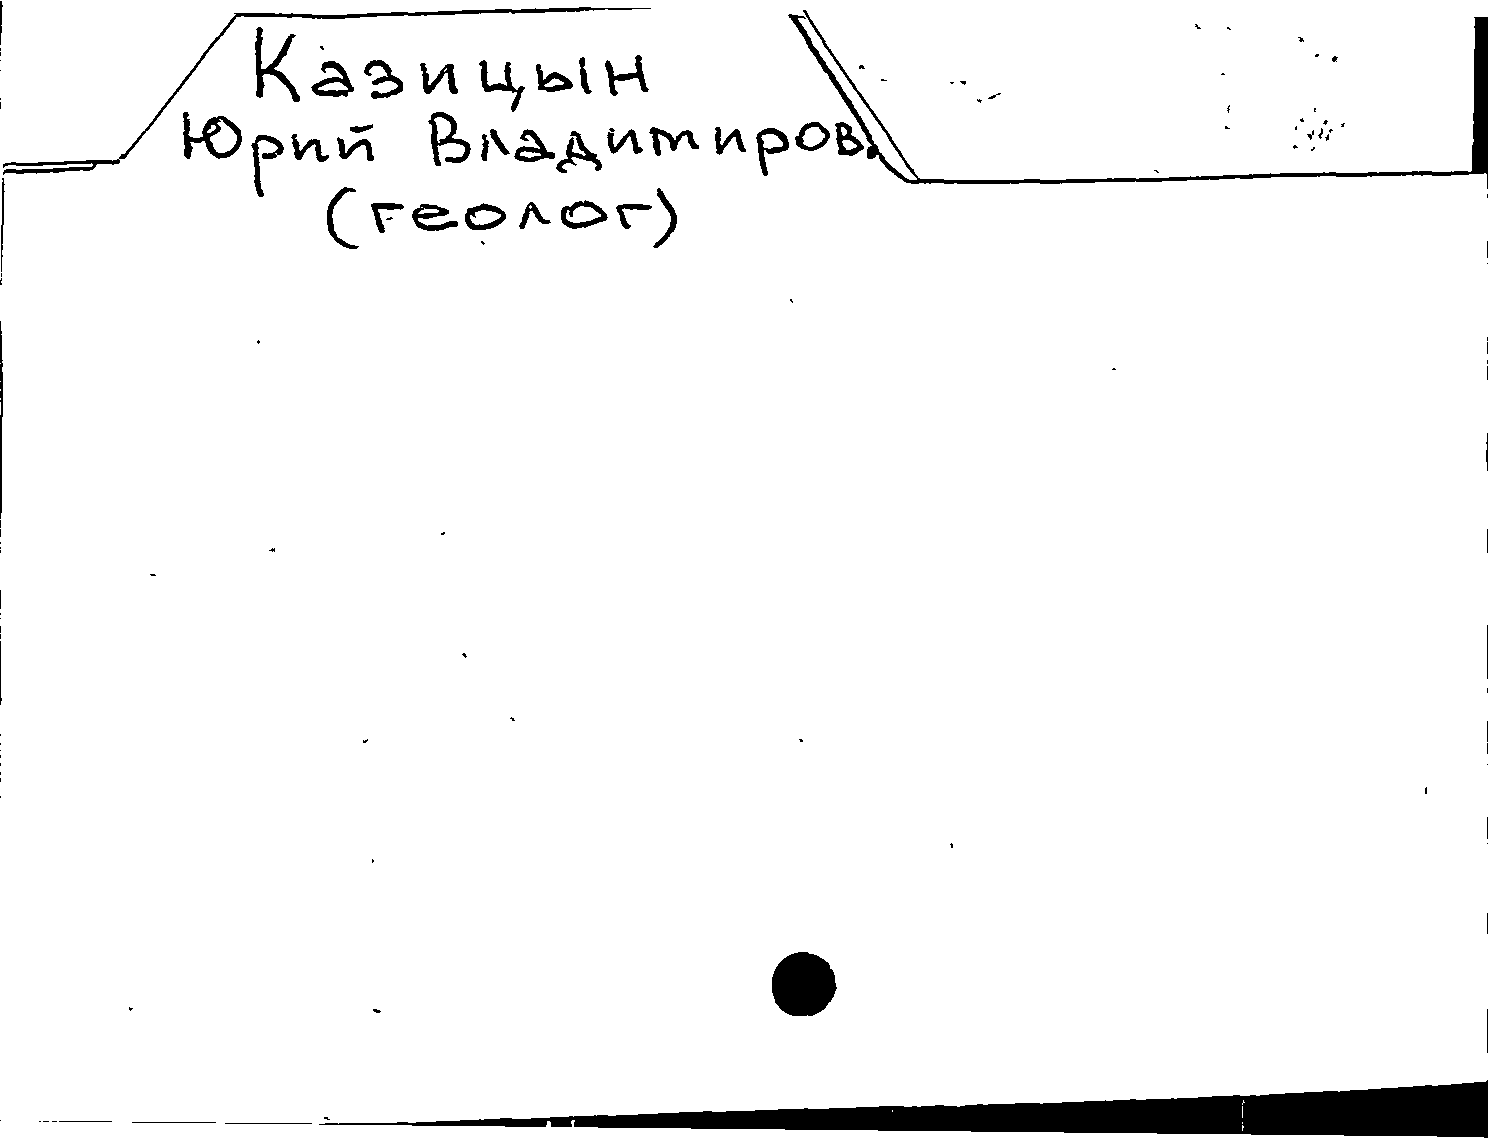 Казицын
Юрий Владимиров.
(геолог)